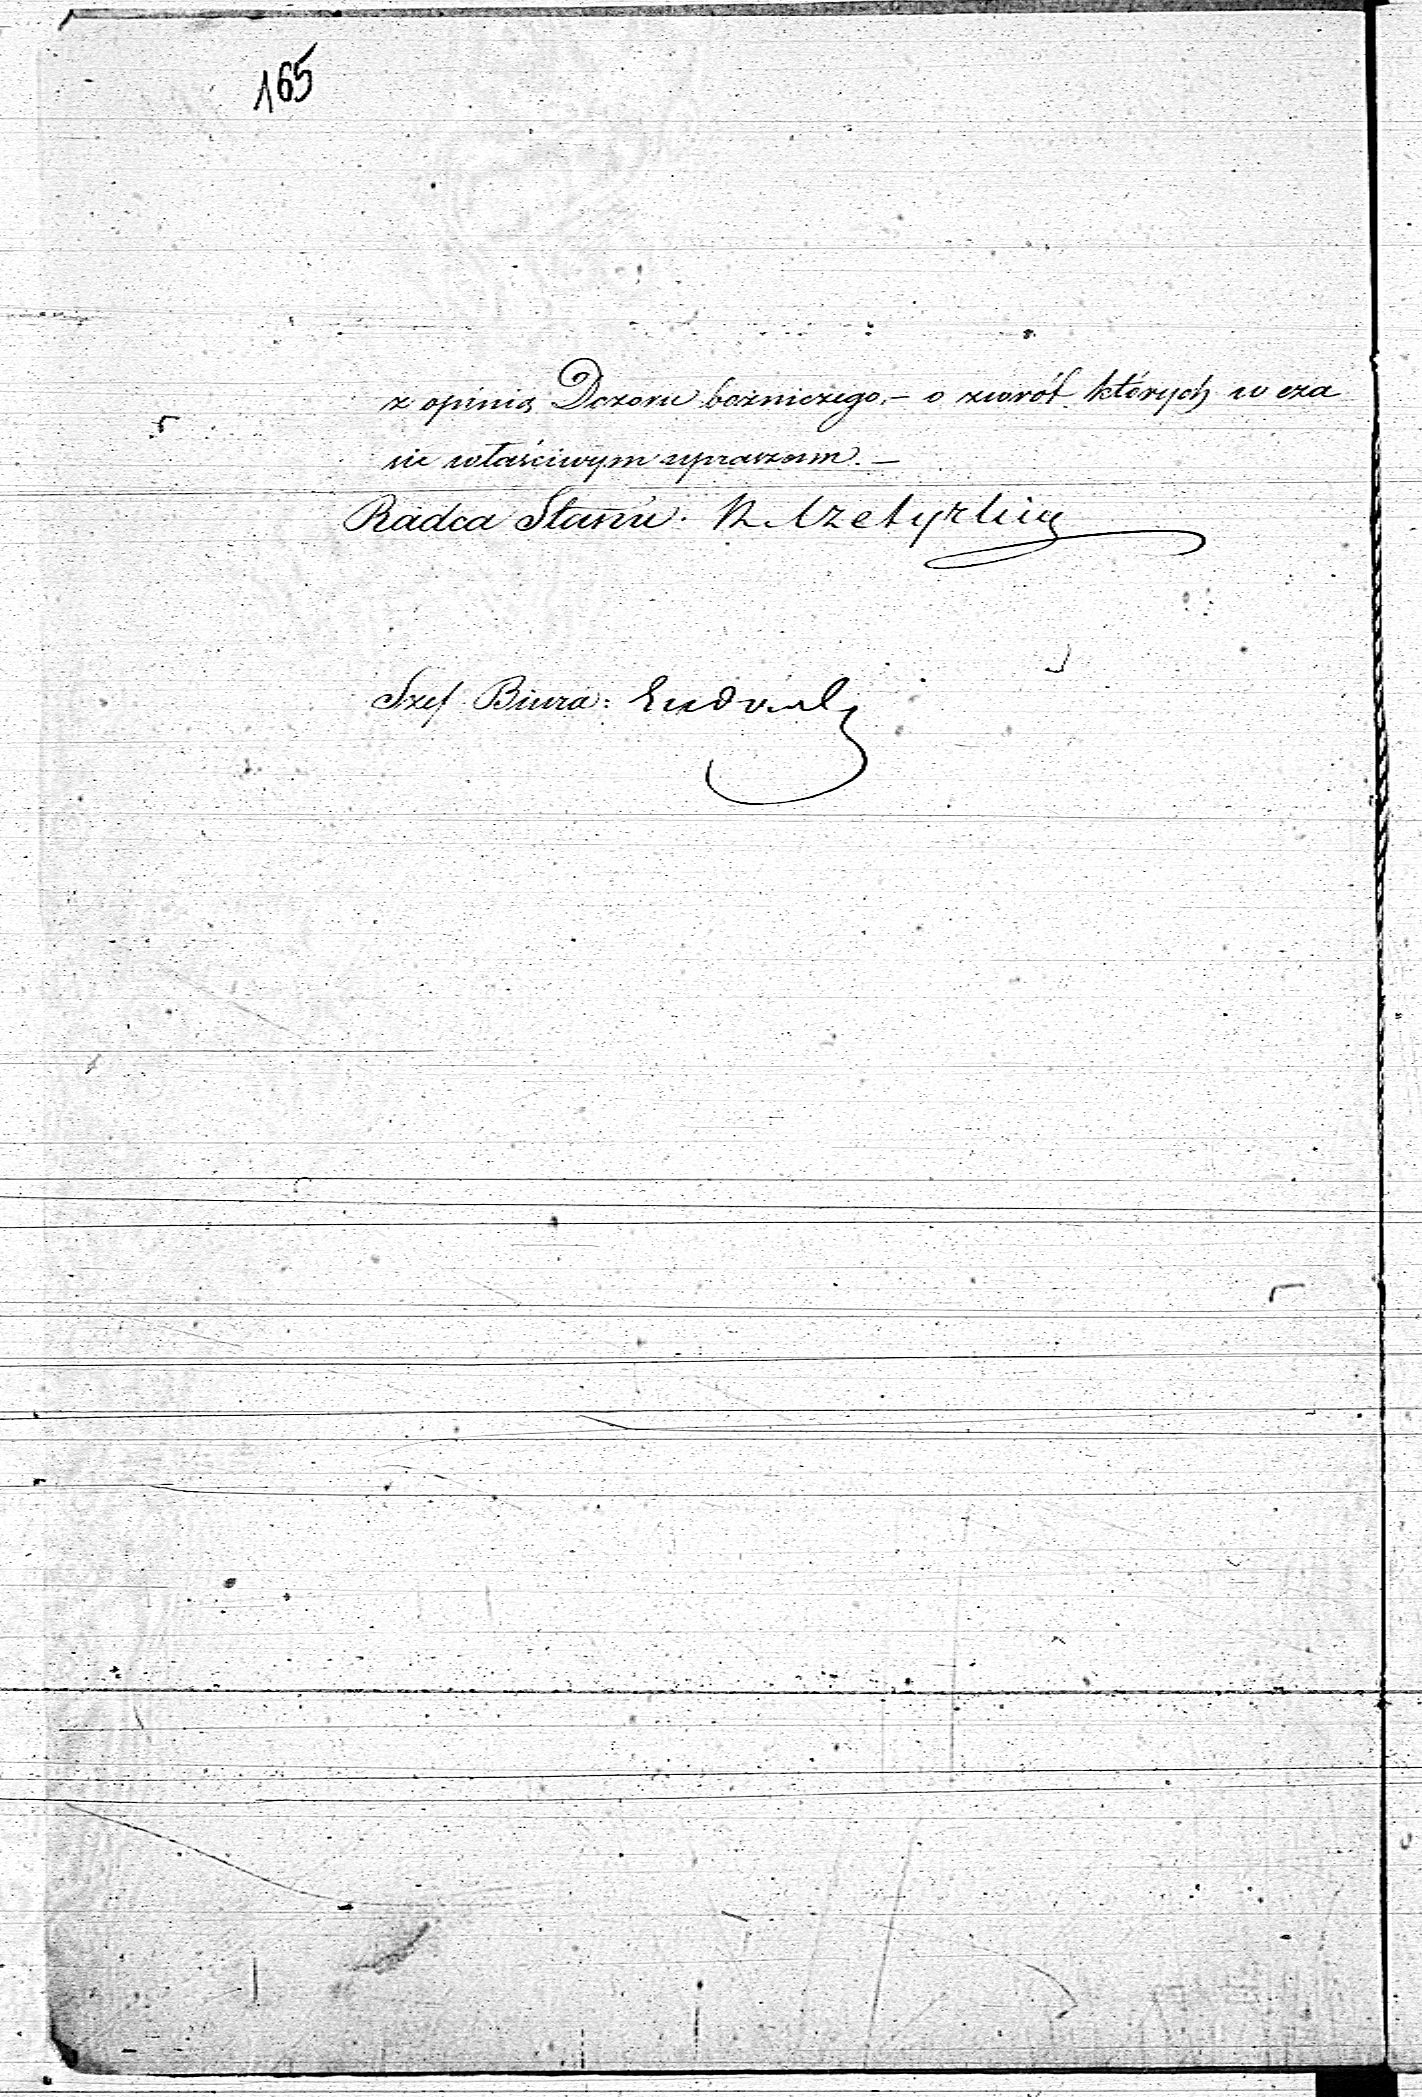 165
z opinią Dozoru bożniczego,— o zwrót których w cza
sie właściwym upraszam.—
Radca Stanu.
Szef Biura: